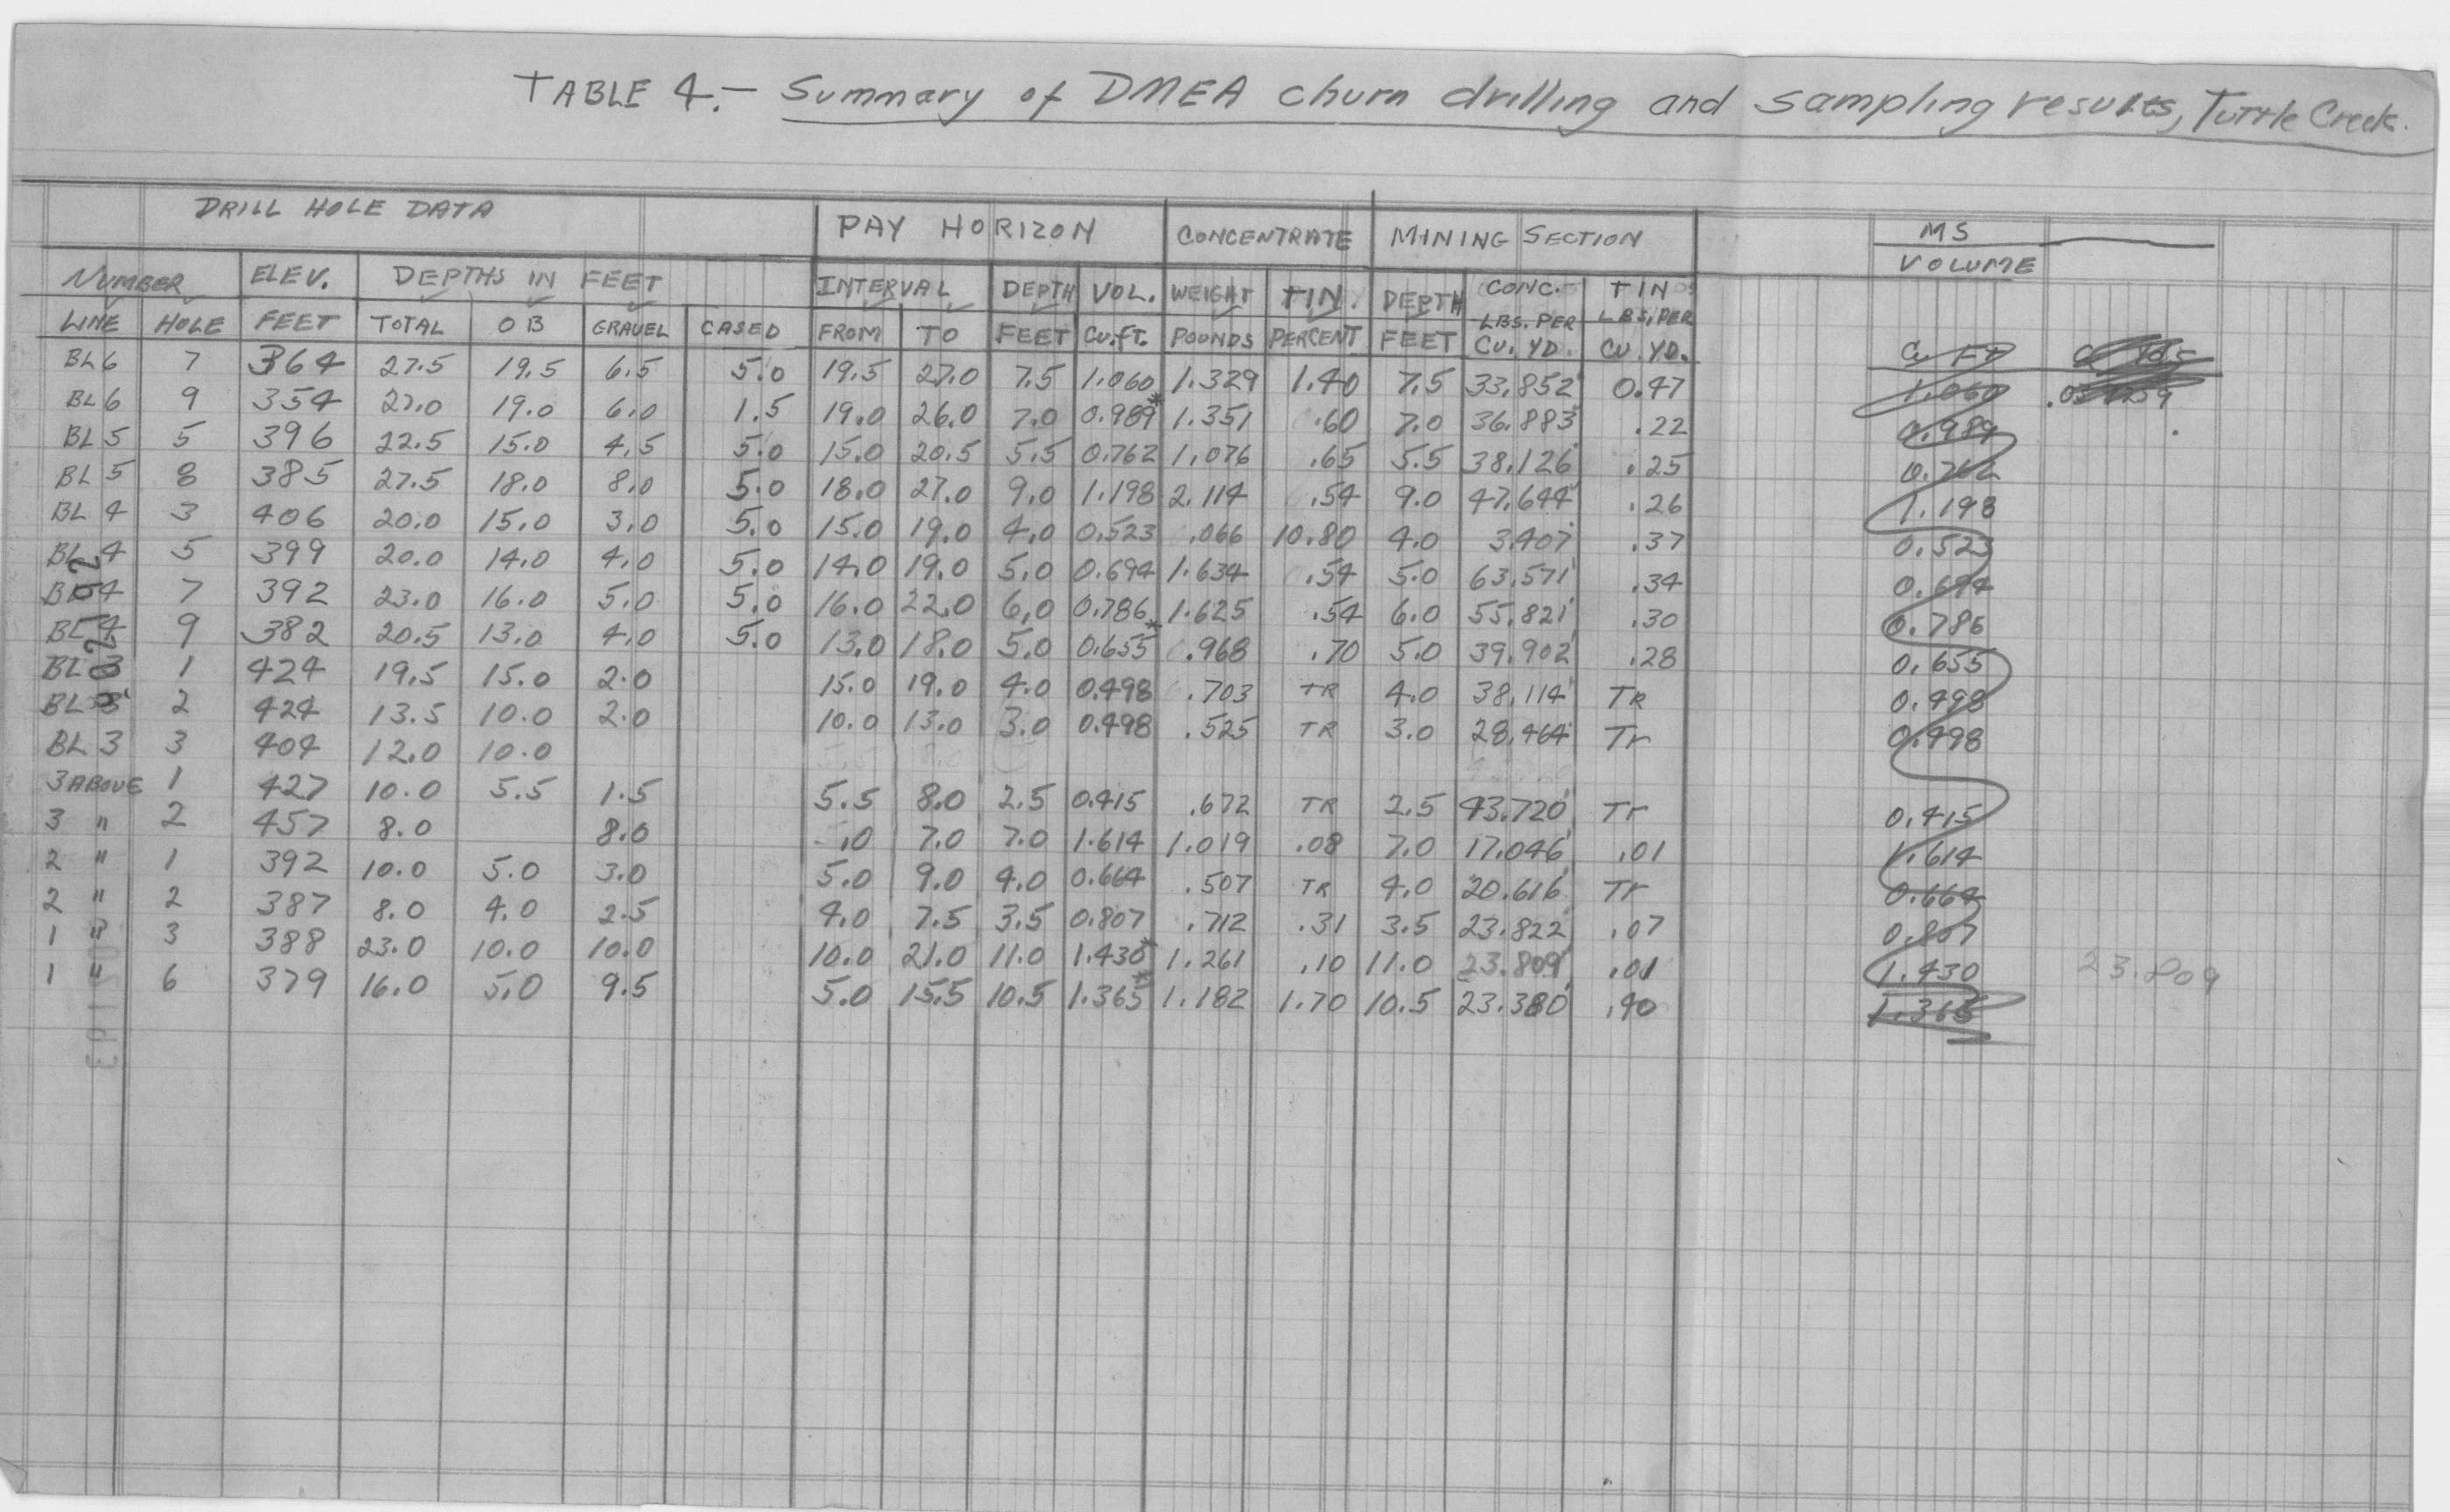 TABLE 4.— Summary of DMEA churn drilling and sampling results, Tuttle Creek.
DRILL HOLE DATA PAY HORIZON CONCENTRATE MINING SECTION MS
NUMBER ELEV. DEPTHS IN FEET INTERVAL DEPTH VOL. WEIGHT TIN. DEPTH CONC. TIN VOLUME
LINE HOLE FEET TOTAL OB GRAVEL CASED FROM TO FEET Cu.ft. POUNDS PERCENT FEET LBS. PER CU. YD. LBS. PER CU. YD. Cu Ft Cu Yds
BL6 7 364 27.5 19.5 6.5 5.0 19.5 27.0 7.5 1.060 1.329 1.40 7.5 33.852 0.47 1.060
BL6 9 354 27.0 19.0 6.0 1.5 19.0 26.0 7.0 0.989* 1.351 .60 7.0 36.883 .22 0.989
BL5 5 396 22.5 15.0 4.5 5.0 15.0 20.5 5.5 0.762 1.076 .65 5.5 38.126 .25 0.762
BL5 8 385 27.5 18.0 8.0 5.0 18.0 27.0 9.0 1.198 2.114 .54 9.0 47.644 .26 1.198
BL4 3 406 20.0 15.0 3.0 5.0 15.0 19.0 4.0 0.523 .066 10.80 4.0 3.407 .37 0.523
BL4 5 399 20.0 14.0 4.0 5.0 14.0 19.0 5.0 0.694 1.634 .54 5.0 63.571 .34 0.694
BL4 7 392 23.0 16.0 5.0 5.0 16.0 22.0 6.0 0.786 1.625 .54 6.0 55.821 .30 0.786
BL4 9 382 20.5 13.0 4.0 5.0 13.0 18.0 5.0 0.655* .968 .70 5.0 39.902 .28 0.655
BL3 1 424 19.5 15.0 2.0 15.0 19.0 4.0 0.498 .703 TR 4.0 38.114 TR 0.498
BL3 2 424 13.5 10.0 2.0 10.0 13.0 3.0 0.498 .525 TR 3.0 28.464 Tr 0.498
BL3 3 404 12.0 10.0
3 ABOVE 1 427 10.0 5.5 1.5 5.5 8.0 2.5 0.415 .672 TR 2.5 43.720 Tr 0.415
3 " 2 457 8.0 8.0 .0 7.0 7.0 1.614 1.019 .08 7.0 17.046 .01 1.614
2 " 1 392 10.0 5.0 3.0 5.0 9.0 4.0 0.664 .507 TR 4.0 20.616 Tr 0.664
2 " 2 387 8.0 4.0 2.5 4.0 7.5 3.5 0.807 .712 .31 3.5 23.822 .07 0.807
1 " 3 388 23.0 10.0 10.0 10.0 21.0 11.0 1.430* 1.261 .10 11.0 23.809 .01 1.430 23.809
1 " 6 379 16.0 5.0 9.5 5.0 15.5 10.5 1.365* 1.182 1.70 10.5 23.380 .40 1.365